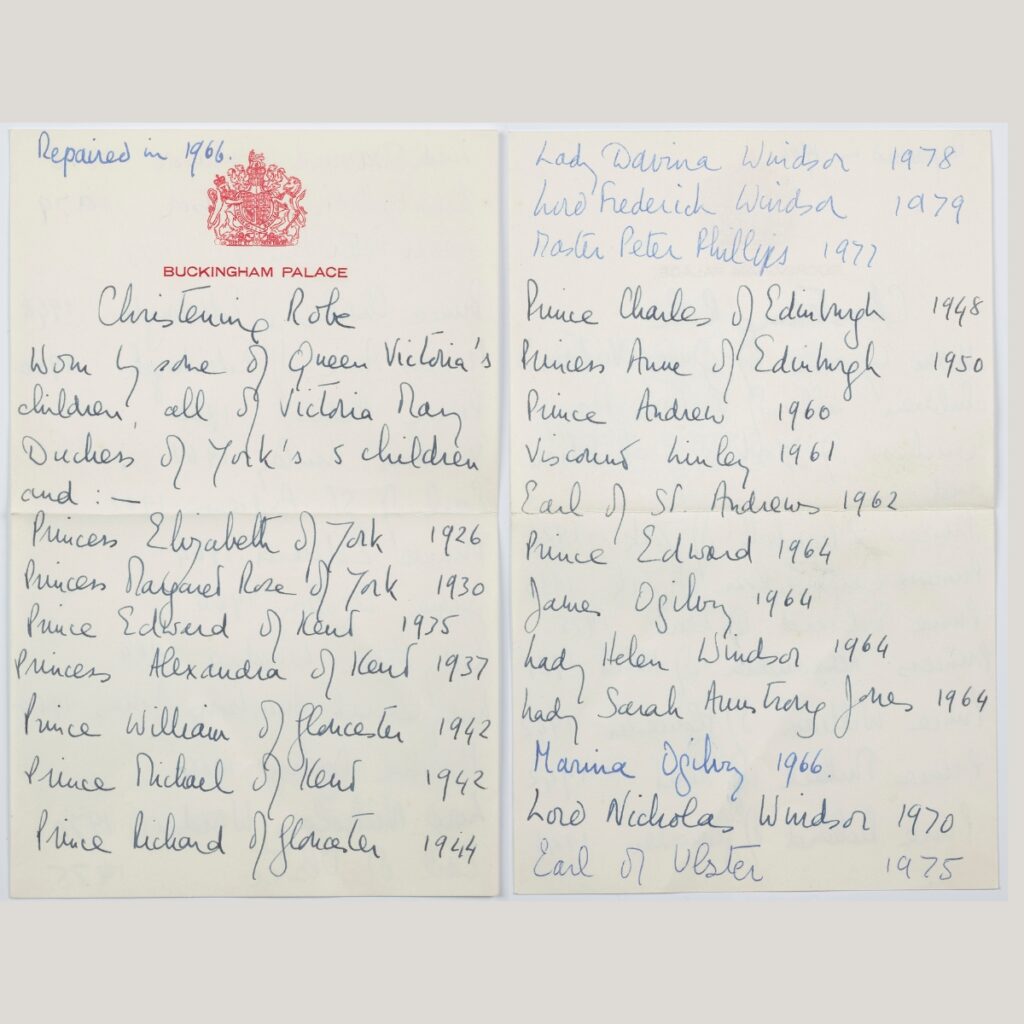 Repaired in 1966.
BUCKINGHAM PALACE
Christening Robe
Worn by some of Queen Victoria's
children, all of Victoria Mary
Duchess of York's 5 children
and : —
Princess Elizabeth of York 1926
Princess Margaret Rose of York 1930
Prince Edward of Kent 1935
Princess Alexandra of Kent 1937
Prince William of Gloucester 1942
Prince Michael of Kent 1942
Prince Richard of Gloucester 1944
Lady Davina Windsor 1978
Lord Frederick Windsor 1979
Master Peter Phillips 1977
Prince Charles of Edinburgh 1948
Princess Anne of Edinburgh 1950
Prince Andrew 1960
Viscount Linley 1961
Earl of St. Andrews 1962
Prince Edward 1964
James Ogilvy 1964
Lady Helen Windsor 1964
Lady Sarah Armstrong Jones 1964
Marina Ogilvy 1966.
Lord Nicholas Windsor 1970
Earl of Ulster 1975